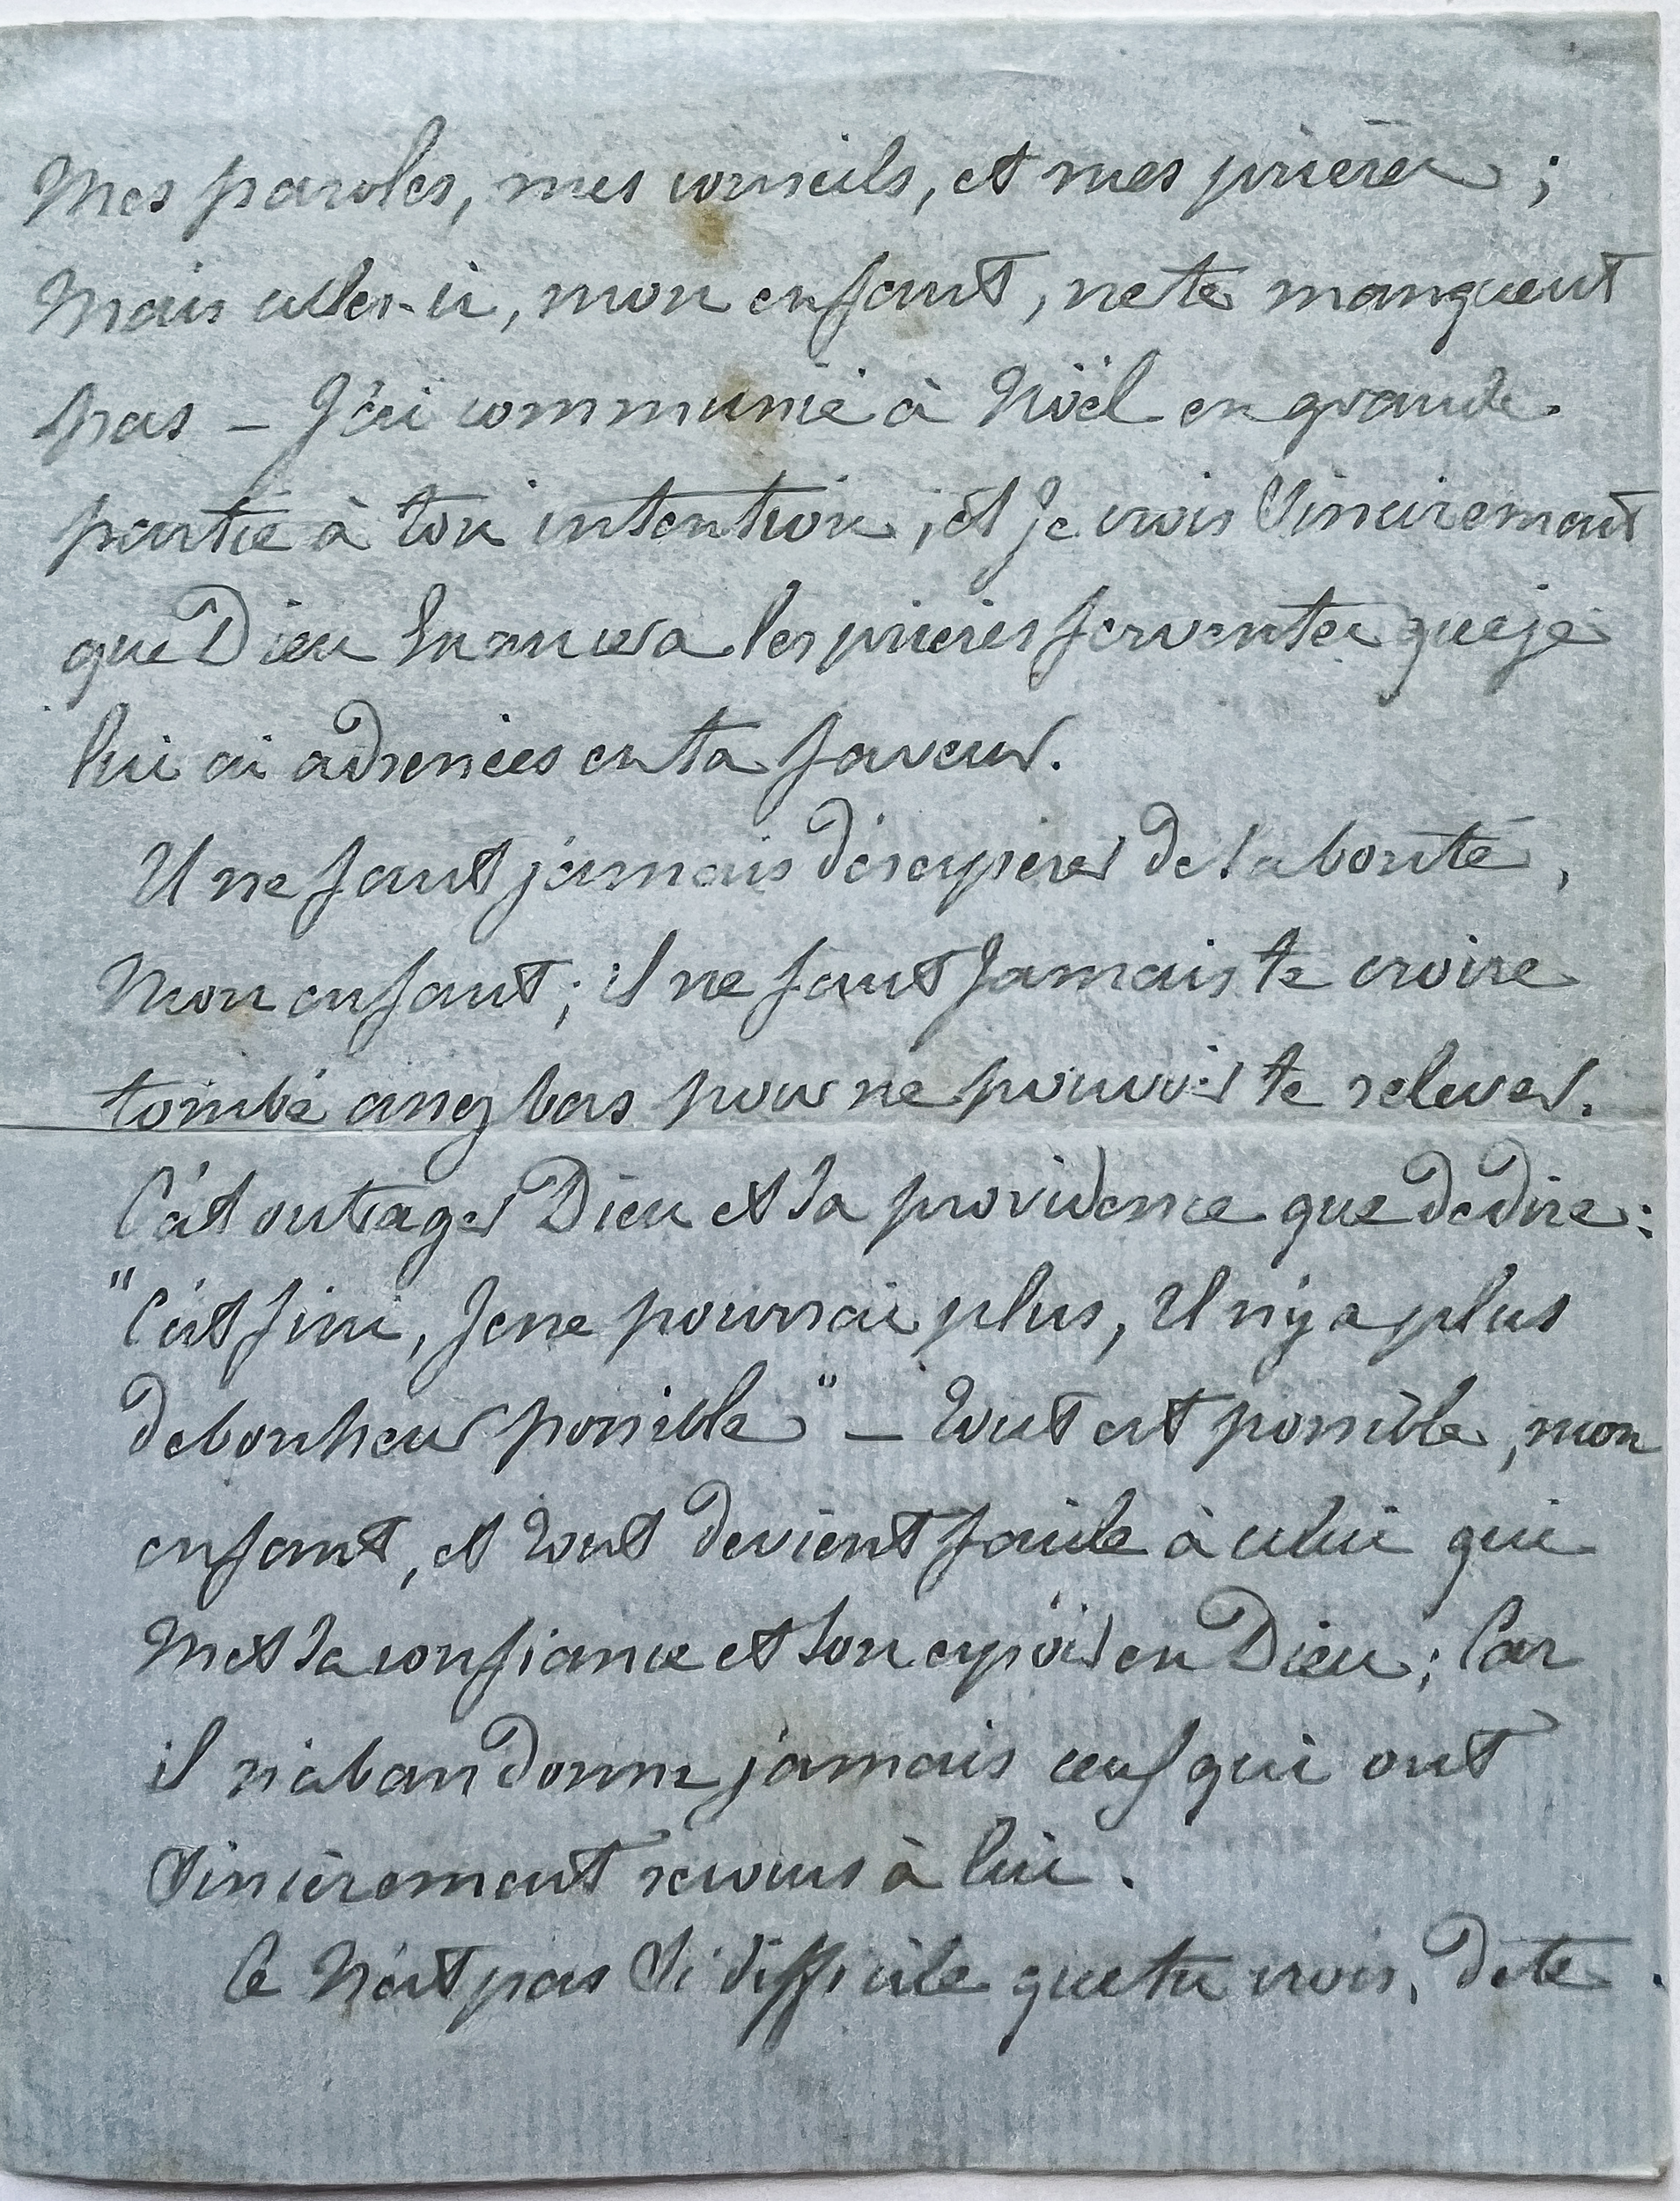 Mes paroles, mes conseils, et mes prières ;
Mais celles-ci, mon enfant, ne te manquent
pas – J'ai communié à Noël en grande
partie à ton intention, et je crois Sincèrement
que Dieu Exaucera les prières ferventes que je
lui ai adressées en ta faveur.
Il ne faut jamais désespérer de sa bonté,
Mon enfant ; il ne faut Jamais te croire
tombé assez bas pour ne pouvoir te relever.
C'est outrager Dieu et Sa providence que de dire :
"C'est fini, Je ne pourrai plus, Il n'y a plus
de bonheur possible" – Tout est possible, mon
enfant, et tout devient facile à celui qui
Met Sa confiance et Son espoir en Dieu ; Car
il n'abandonne jamais ceux qui ont
Sincèrement recours à lui.
Ce N'est pas Si difficile que tu crois, de te